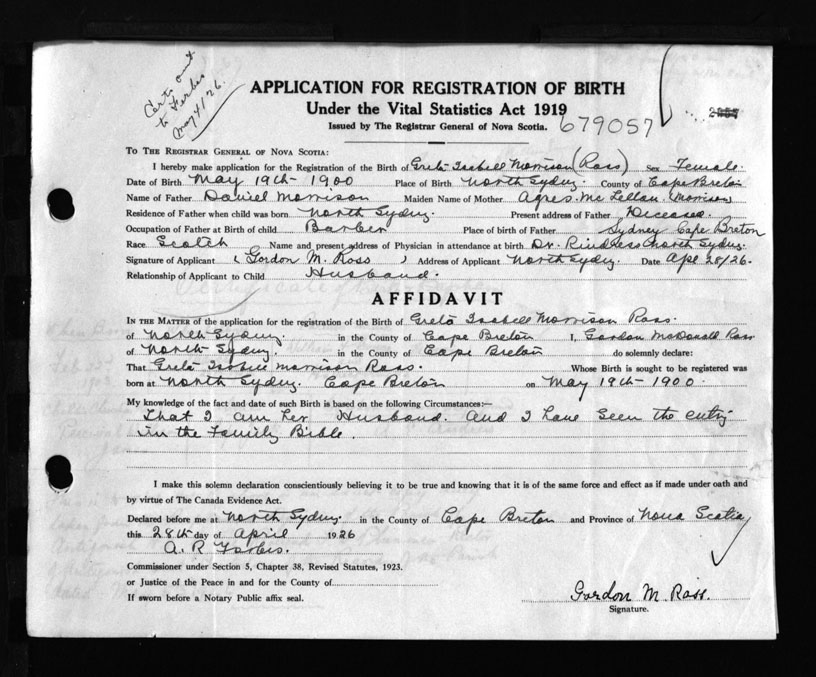 Certs out
to Forbes
May 4/26.
APPLICATION FOR REGISTRATION OF BIRTH
Under the Vital Statistics Act 1919
Issued by The Registrar General of Nova Scotia.
679057
TO THE REGISTRAR GENERAL OF NOVA SCOTIA:
I hereby make application for the Registration of the Birth of Greta Isabell Morrison (Ross) Sex Female.
Date of Birth May 19th - 1900 Place of Birth North Sydney. County of Cape Breton
Name of Father Daniel Morrison Maiden Name of Mother Agnes. Mc Lellan Morrison
Residence of Father when child was born North Sydney. Present address of Father Deceased.
Occupation of Father at Birth of child Barber Place of birth of Father Sydney Cape Breton
Race Scotch Name and present address of Physician in attendance at birth Dr. North Sydney.
Signature of Applicant ( Gordon M. Ross ) Address of Applicant North Sydney. Date Apl 28/26.
Relationship of Applicant to Child Husband.
AFFIDAVIT
IN THE MATTER of the application for the registration of the Birth of Greta Isabell Morrison Ross.
of North Sydney. in the County of Cape Breton I, Gordon McDonald Ross
of North Sydney. in the County of Cape Breton do solemnly declare:
That Greta Isabell Morrison Ross. Whose Birth is sought to be registered was
born at North Sydney. Cape Breton on May 19th - 1900.
My knowledge of the fact and date of such Birth is based on the following Circumstances:—
That I am her Husband. And I have seen the entry
in the Family Bible.
I make this solemn declaration conscientiously believing it to be true and knowing that it is of the same force and effect as if made under oath and
by virtue of The Canada Evidence Act.
Declared before me at North Sydney. in the County of Cape Breton and Province of Nova Scotia
this 28th day of April 1926
A. R Forbes.
Commissioner under Section 5, Chapter 38, Revised Statutes, 1923.
or Justice of the Peace in and for the County of
If sworn before a Notary Public affix seal.
Gordon M. Ross.
Signature.